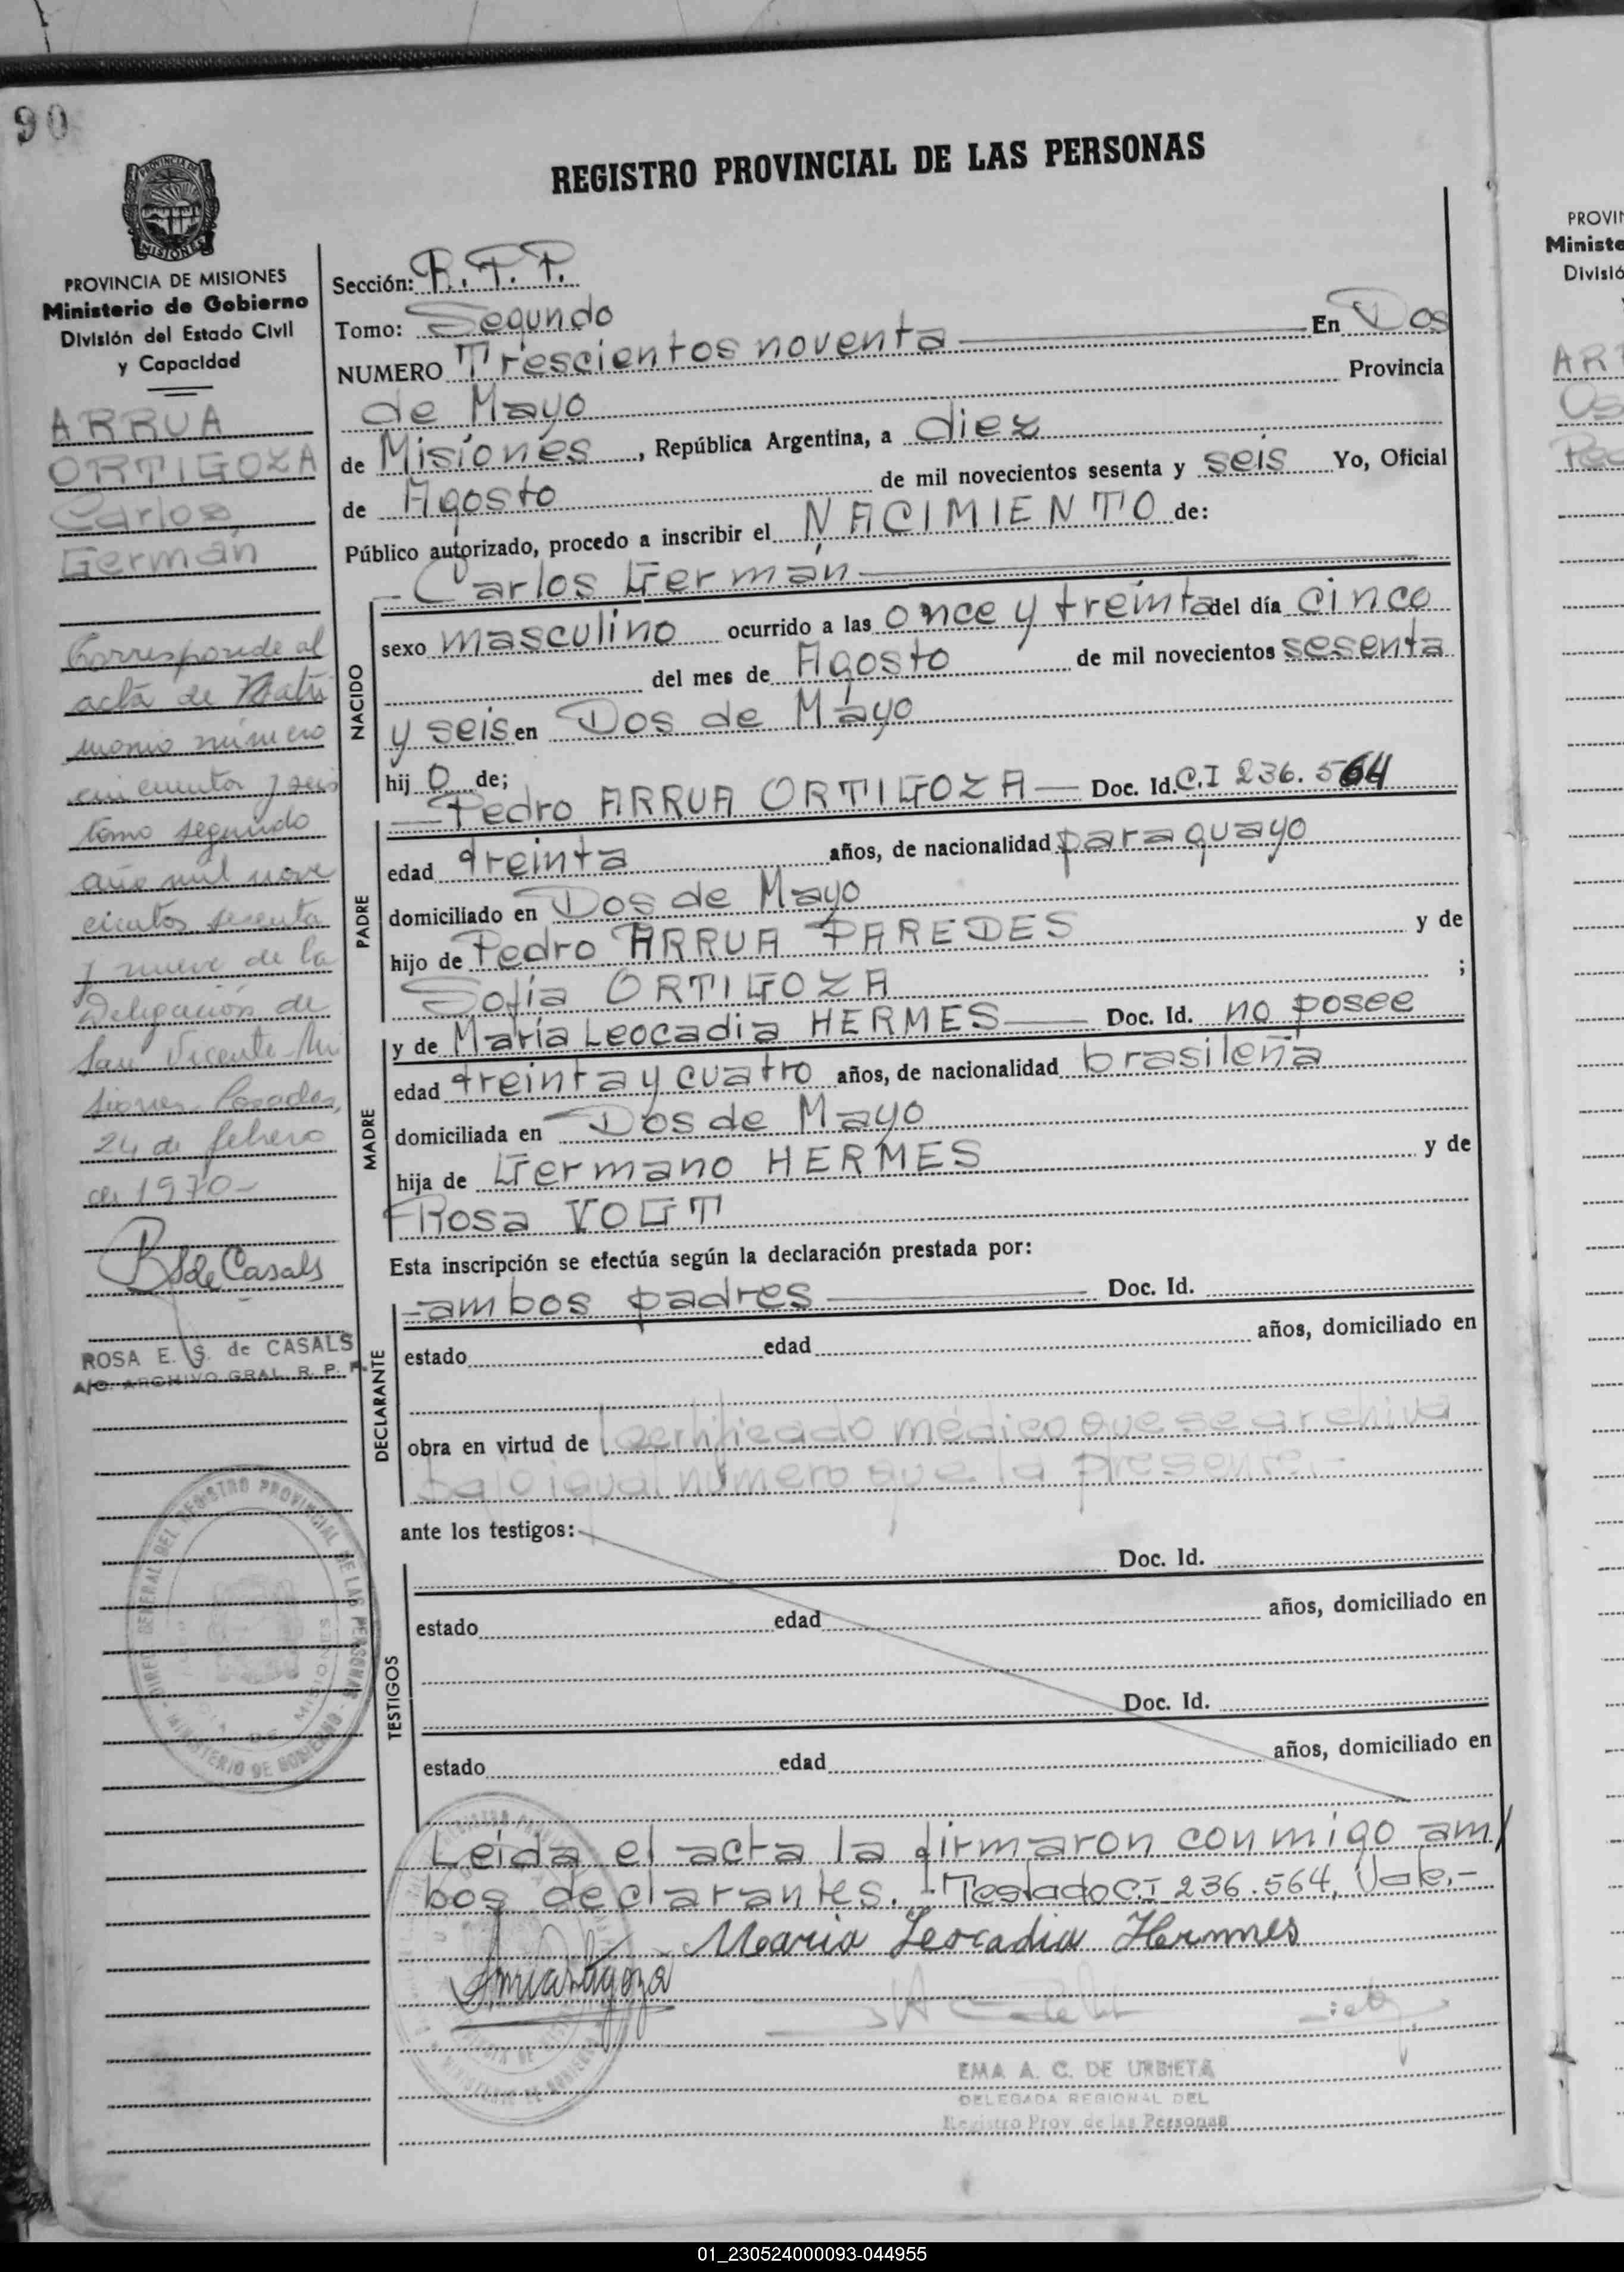 90
REGISTRO PROVINCIAL DE LAS PERSONAS
PROVINCIA DE MISIONES
Ministerio de Gobierno
División del Estado Civil
y Capacidad
ARRUA
ORTIGOZA
Carlos
Germán
Corresponde al
acta de Matri
monio número
cincuenta y seis
tomo segundo
año mil nove
cientos sesenta
y nueve de la
Delegación de
San Vicente Mi
siones. Posadas,
24 de febrero
de 1970-
BSdeCasals
ROSA E. S. de CASALS
A/C. ARCHIVO GRAL. R. P. P.
DIREC. GENERAL DEL REGISTRO PROVINCIAL DE LAS PERSONAS
MINISTERIO DE GOBIERNO
MISIONES
Sección: R.P.P.
Tomo: Segundo
NUMERO Trescientos noventa En Dos
de Mayo Provincia
de Misiones, República Argentina, a diez
de Agosto de mil novecientos sesenta y seis Yo, Oficial
Público autorizado, procedo a inscribir el NACIMIENTO de:
- Carlos Germán
NACIDO
sexo masculino ocurrido a las once y treinta del día cinco
del mes de Agosto de mil novecientos sesenta
y seis en Dos de Mayo
hij o de;
Pedro ARRUA ORTIGOZA — Doc. Id. C.I 236.564
PADRE
edad treinta años, de nacionalidad paraguayo
domiciliado en Dos de Mayo
hijo de Pedro ARRUA PAREDES y de
Sofía ORTIGOZA ;
y de María Leocadia HERMES — Doc. Id. no posee
MADRE
edad treinta y cuatro años, de nacionalidad brasileña
domiciliada en Dos de Mayo
hija de Germano HERMES y de
Rosa VOGT
Esta inscripción se efectúa según la declaración prestada por:
-ambos padres — Doc. Id.
DECLARANTE
estado edad años, domiciliado en
obra en virtud de certificado médico que se archiva
bajo igual número que la presente.-
ante los testigos:
Doc. Id.
TESTIGOS
estado edad años, domiciliado en
Doc. Id.
estado edad años, domiciliado en
Leída el acta la firmaron conmigo am/
bos declarantes.-Testado C.I 236.564, Vale.-
Maria Leocadia Hermes
EMA A. C. DE URBIETA
DELEGADA REGIONAL DEL
Registro Prov. de las Personas
PROVIN
Ministe
Divisió
AR
01_230524000093-044955